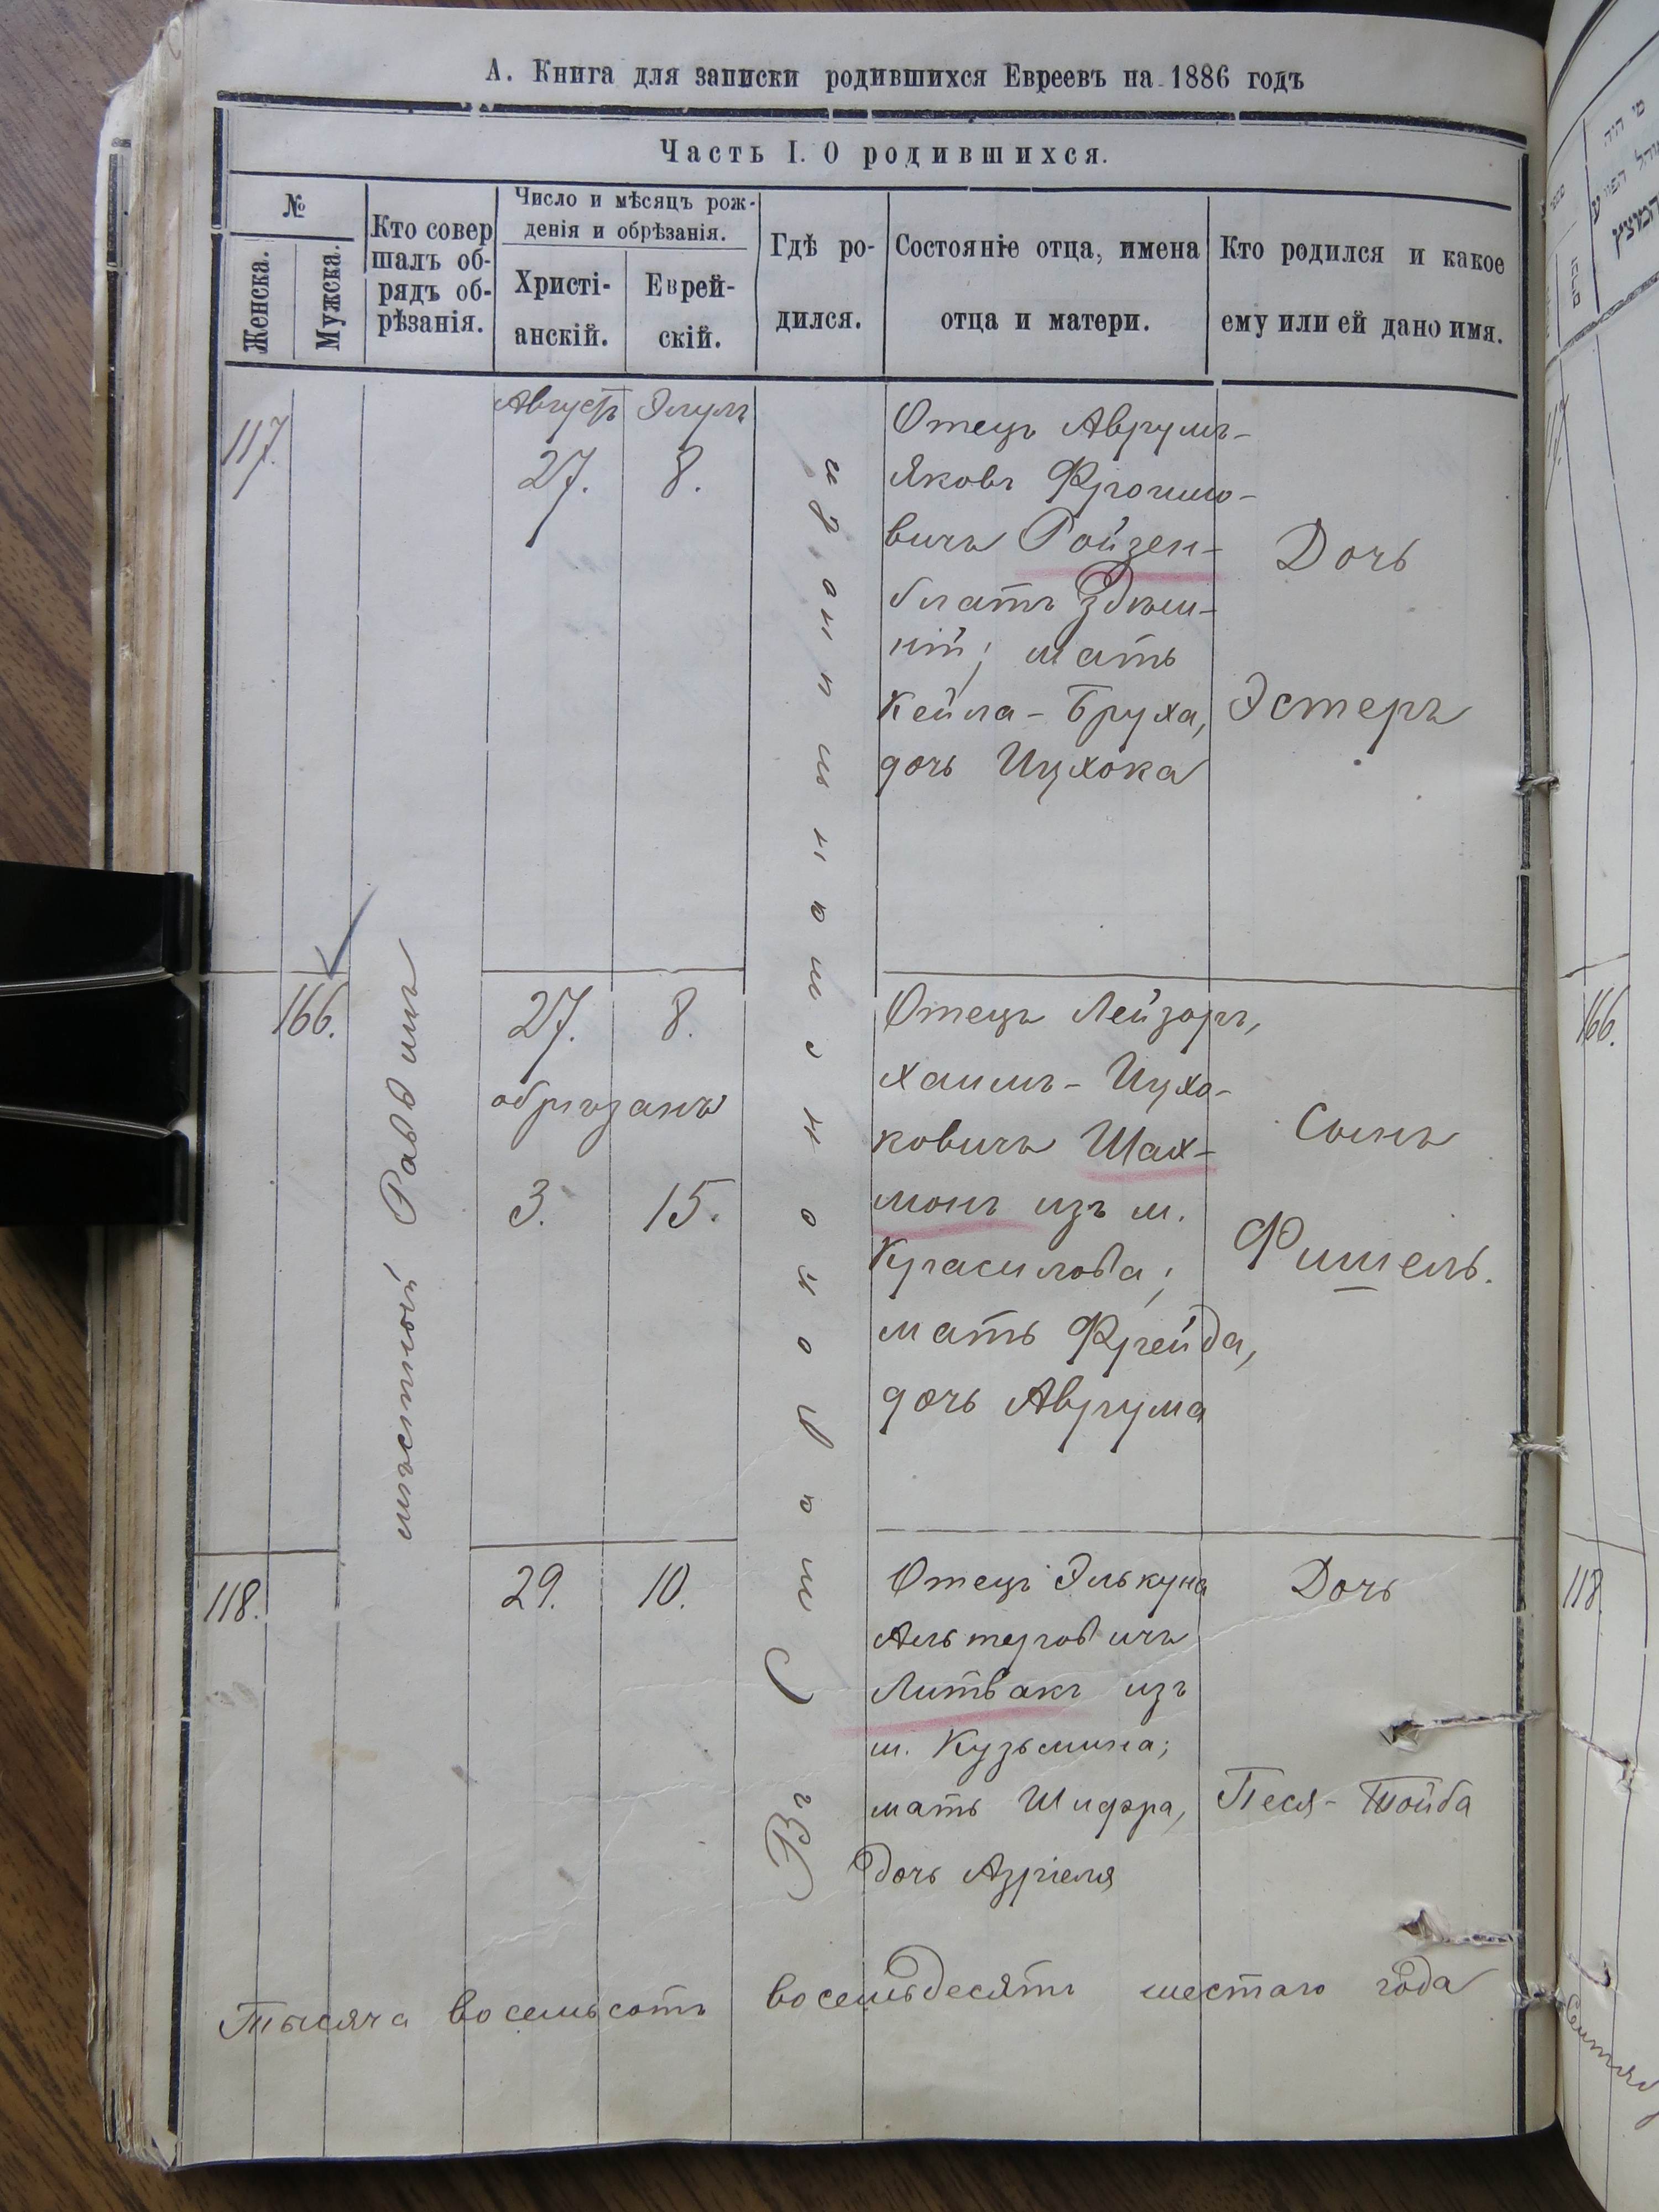 А. Книга для записки родившихся Евреевъ на 1886 годъ
Часть I. О родившихся.
№
Женска.
Мужска.
Кто совер
шалъ об-
рядъ об-
рѣзанія.
Число и мѣсяцъ рож-
денія и обрѣзанія.
Христі-
анскій.
Еврей-
скій.
Гдѣ ро-
дился.
Состояніе отца, имена
отца и матери.
Кто родился и какое
ему или ей дано имя.
117.
Августъ Элулъ
27. 8.
Отецъ Аврумъ-
Яковъ Фроимо-
вичъ Ройзен-
блатъ здѣш-
ній; мать
Кейла-Бруха,
дочь Ицхока
Дочь
Эстеръ
166.
мѣстный Раввинъ
27. 8.
обрѣзанъ
3. 15.
Въ Староконстантинопли
Отецъ Лейзоръ,
Хаимъ-Ицхо-
ковичъ Шах-
монъ изъ м.
Красилова;
мать Фрейда,
дочь Аврума
Сынъ
Фишель.
118.
29. 10.
Отецъ Элькуна
Альтеровичъ
Литвакъ изъ
м. Кузьмина;
мать Шифра,
дочь Азріеля
Дочь
Песя-Тойба
Тысяча восемьсотъ восемьдесятъ шестаго года
117
166.
118.